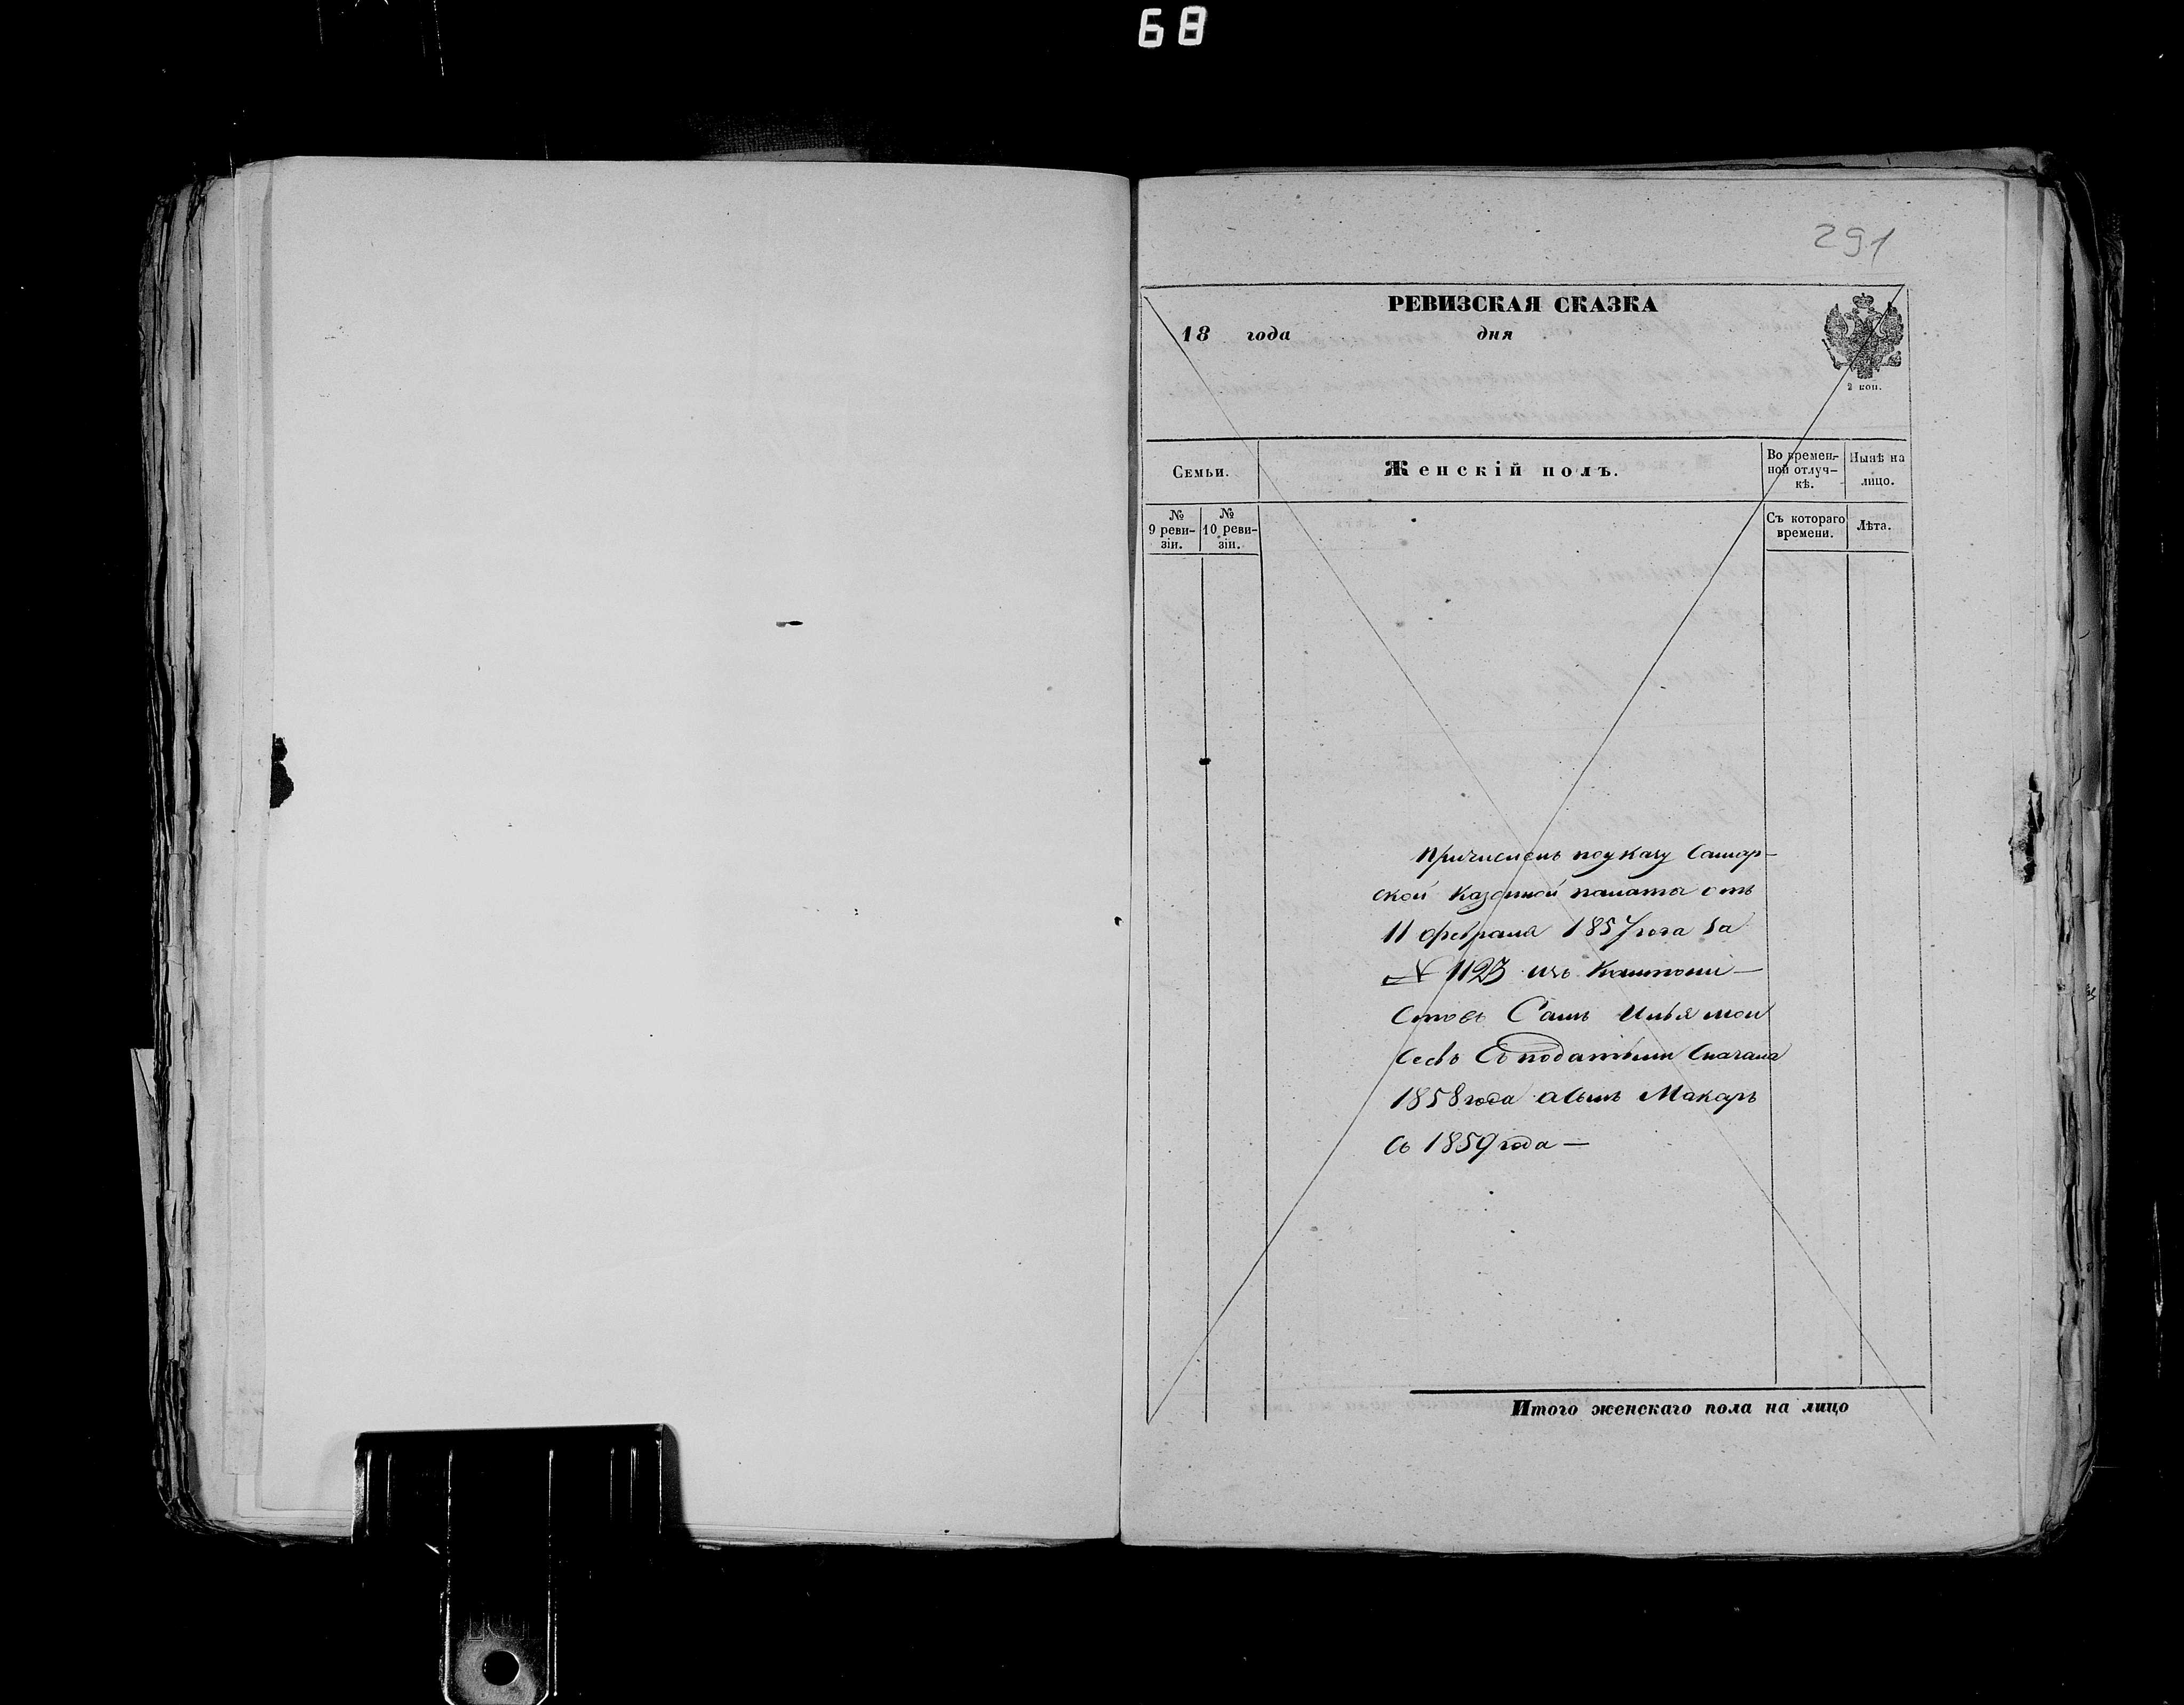 68
291
РЕВИЗСКАЯ СКАЗКА
18 года дня
2 коп.
Семьи.
Женскій полъ.
Во времен-
ной отлуч-
кѣ.
Нынѣ на
лицо.
№
9 реви-
зіи.
№
10 реви-
зіи.
Съ котораго
времени.
Лѣта.
Причисленъ по указу Самар-
ской Казенной палаты отъ
11 февраля 1857 года за
№ 1123 изъ Кантони-
стовъ Самъ Илья
съ податьми сначала
1858 года а сынъ Макаръ
съ 1859 года —
Итого женскаго пола на лицо